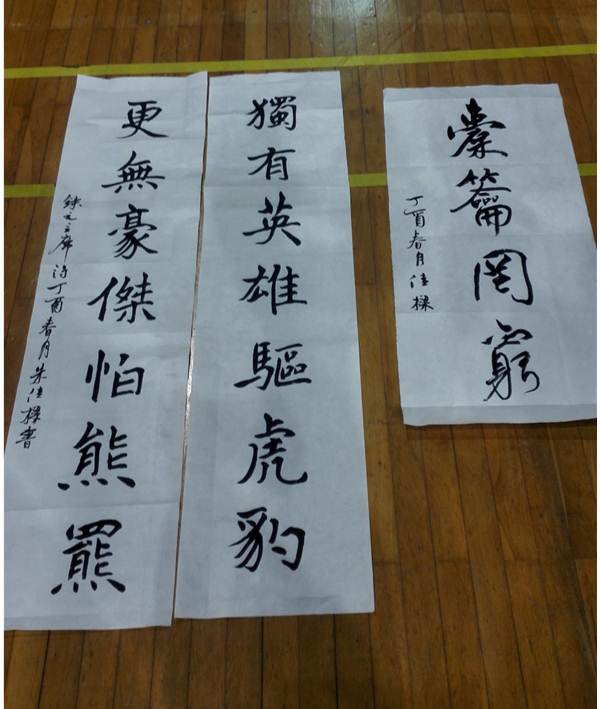 橐籥罔窮
丁酉春月佳樑
獨有英雄驅虎豹
更無豪傑怕熊羆
錄毛主席詩丁酉春月朱佳樑書